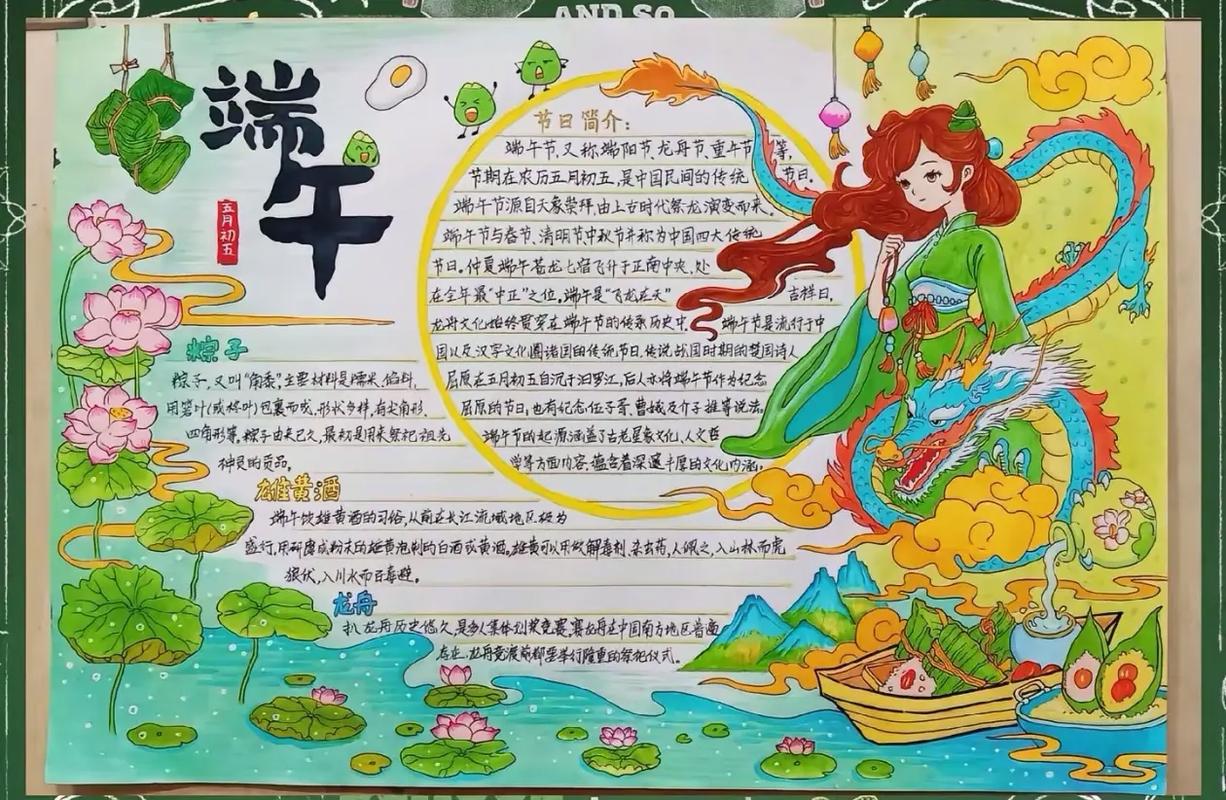 AND SO
端午
五月初五
节日简介:
端午节,又称端阳节、龙舟节、重午节等,
节期在农历五月初五,是中国民间的传统节日.
端午节源自天象崇拜,由上古时代祭龙演变而来.
端午节与春节、清明节、中秋节并称为中国四大传统
节日。仲夏端午苍龙七宿飞升于正南中央,处
在全年最“中正”之位,端午是“飞龙在天”吉祥日,
龙舟文化始终贯穿在端午节的传承历史中端午节是流行于中
国以及汉字文化圈诸国的传统节日,传说战国时期的楚国诗人
屈原在五月初五自沉于汨罗江,后人亦将端午节作为纪念
屈原的节日,也有纪念伍子胥、曹娥及介子推等说法.
端午节的起源涵盖了古老星象文化,人文哲
学等方面内容,蕴含着深邃丰厚的文化内涵.
粽子
粽子,又叫“角黍”主要材料是糯米、馅料,
用箬叶(或柊叶)包裹而成,形状多样,有尖角形、
四角形等.粽子由来已久,最初是用来祭祀祖先
神灵的贡品。
雄黄酒
端午饮雄黄酒的习俗,从前在长江流域地区极为
盛行,用研磨成粉末的雄黄泡制的白酒或黄酒.雄黄可以用做解毒剂、杀虫药,人佩之,入山林而虎
狼伏,入川水而百毒避。
龙舟
扒龙舟历史悠久,是多人集体划桨竞赛,赛龙舟在中国南方地区普遍
存在,龙舟竞渡前都要举行隆重的祭祀仪式。